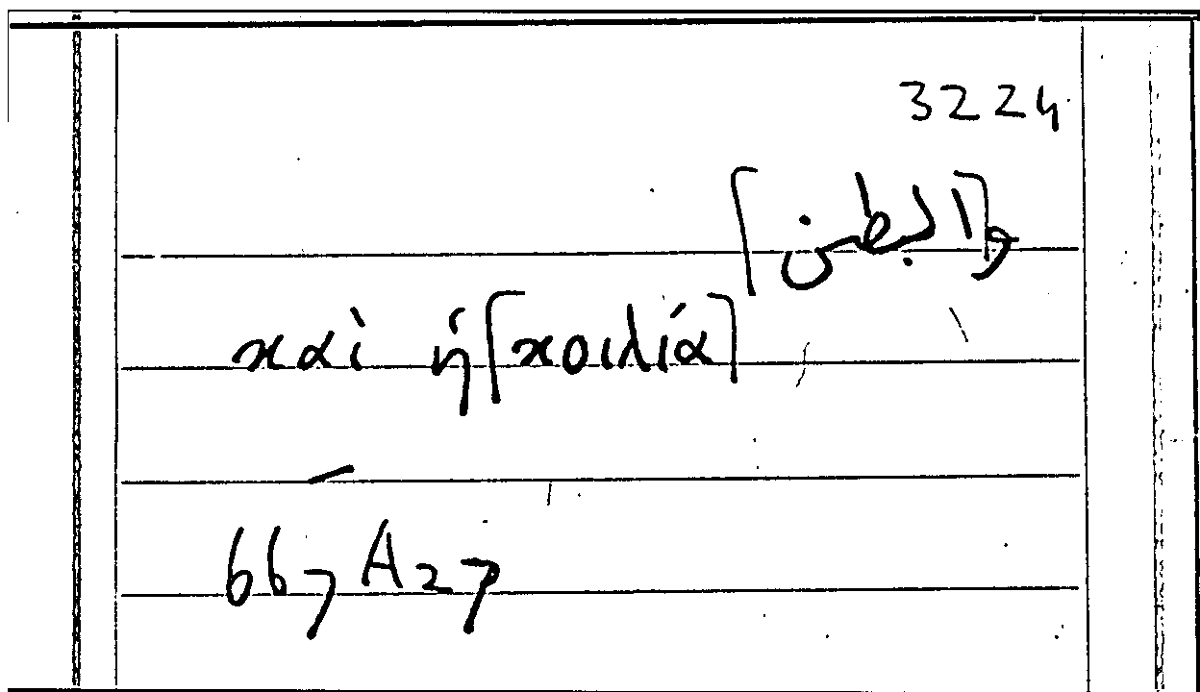 3224
و[البطن]
καὶ ἡ [κοιλία]
667 A 27